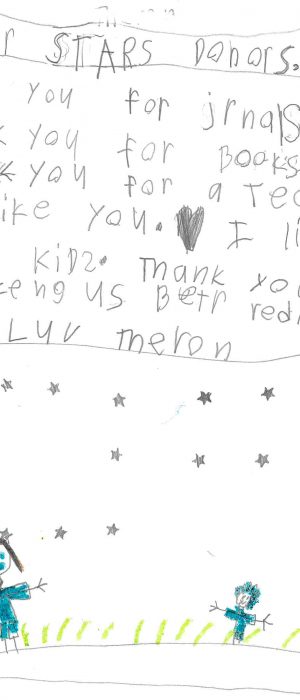 r STARS Donors.
You for jrnals
k you for Books
k you for a Tec
ike you. I li
Kids. Thank you
keng us Betr redr
Luv meron